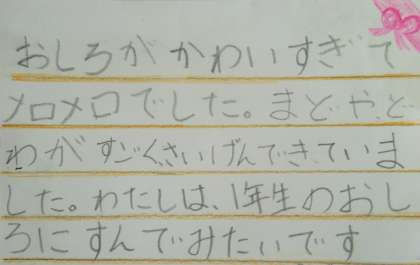 おしろが かわいすぎて
メロメロでした。まどや、ど
わがすごくさいげんできていま
した。わたしは、1年生のおし
ろにすんでみたいです